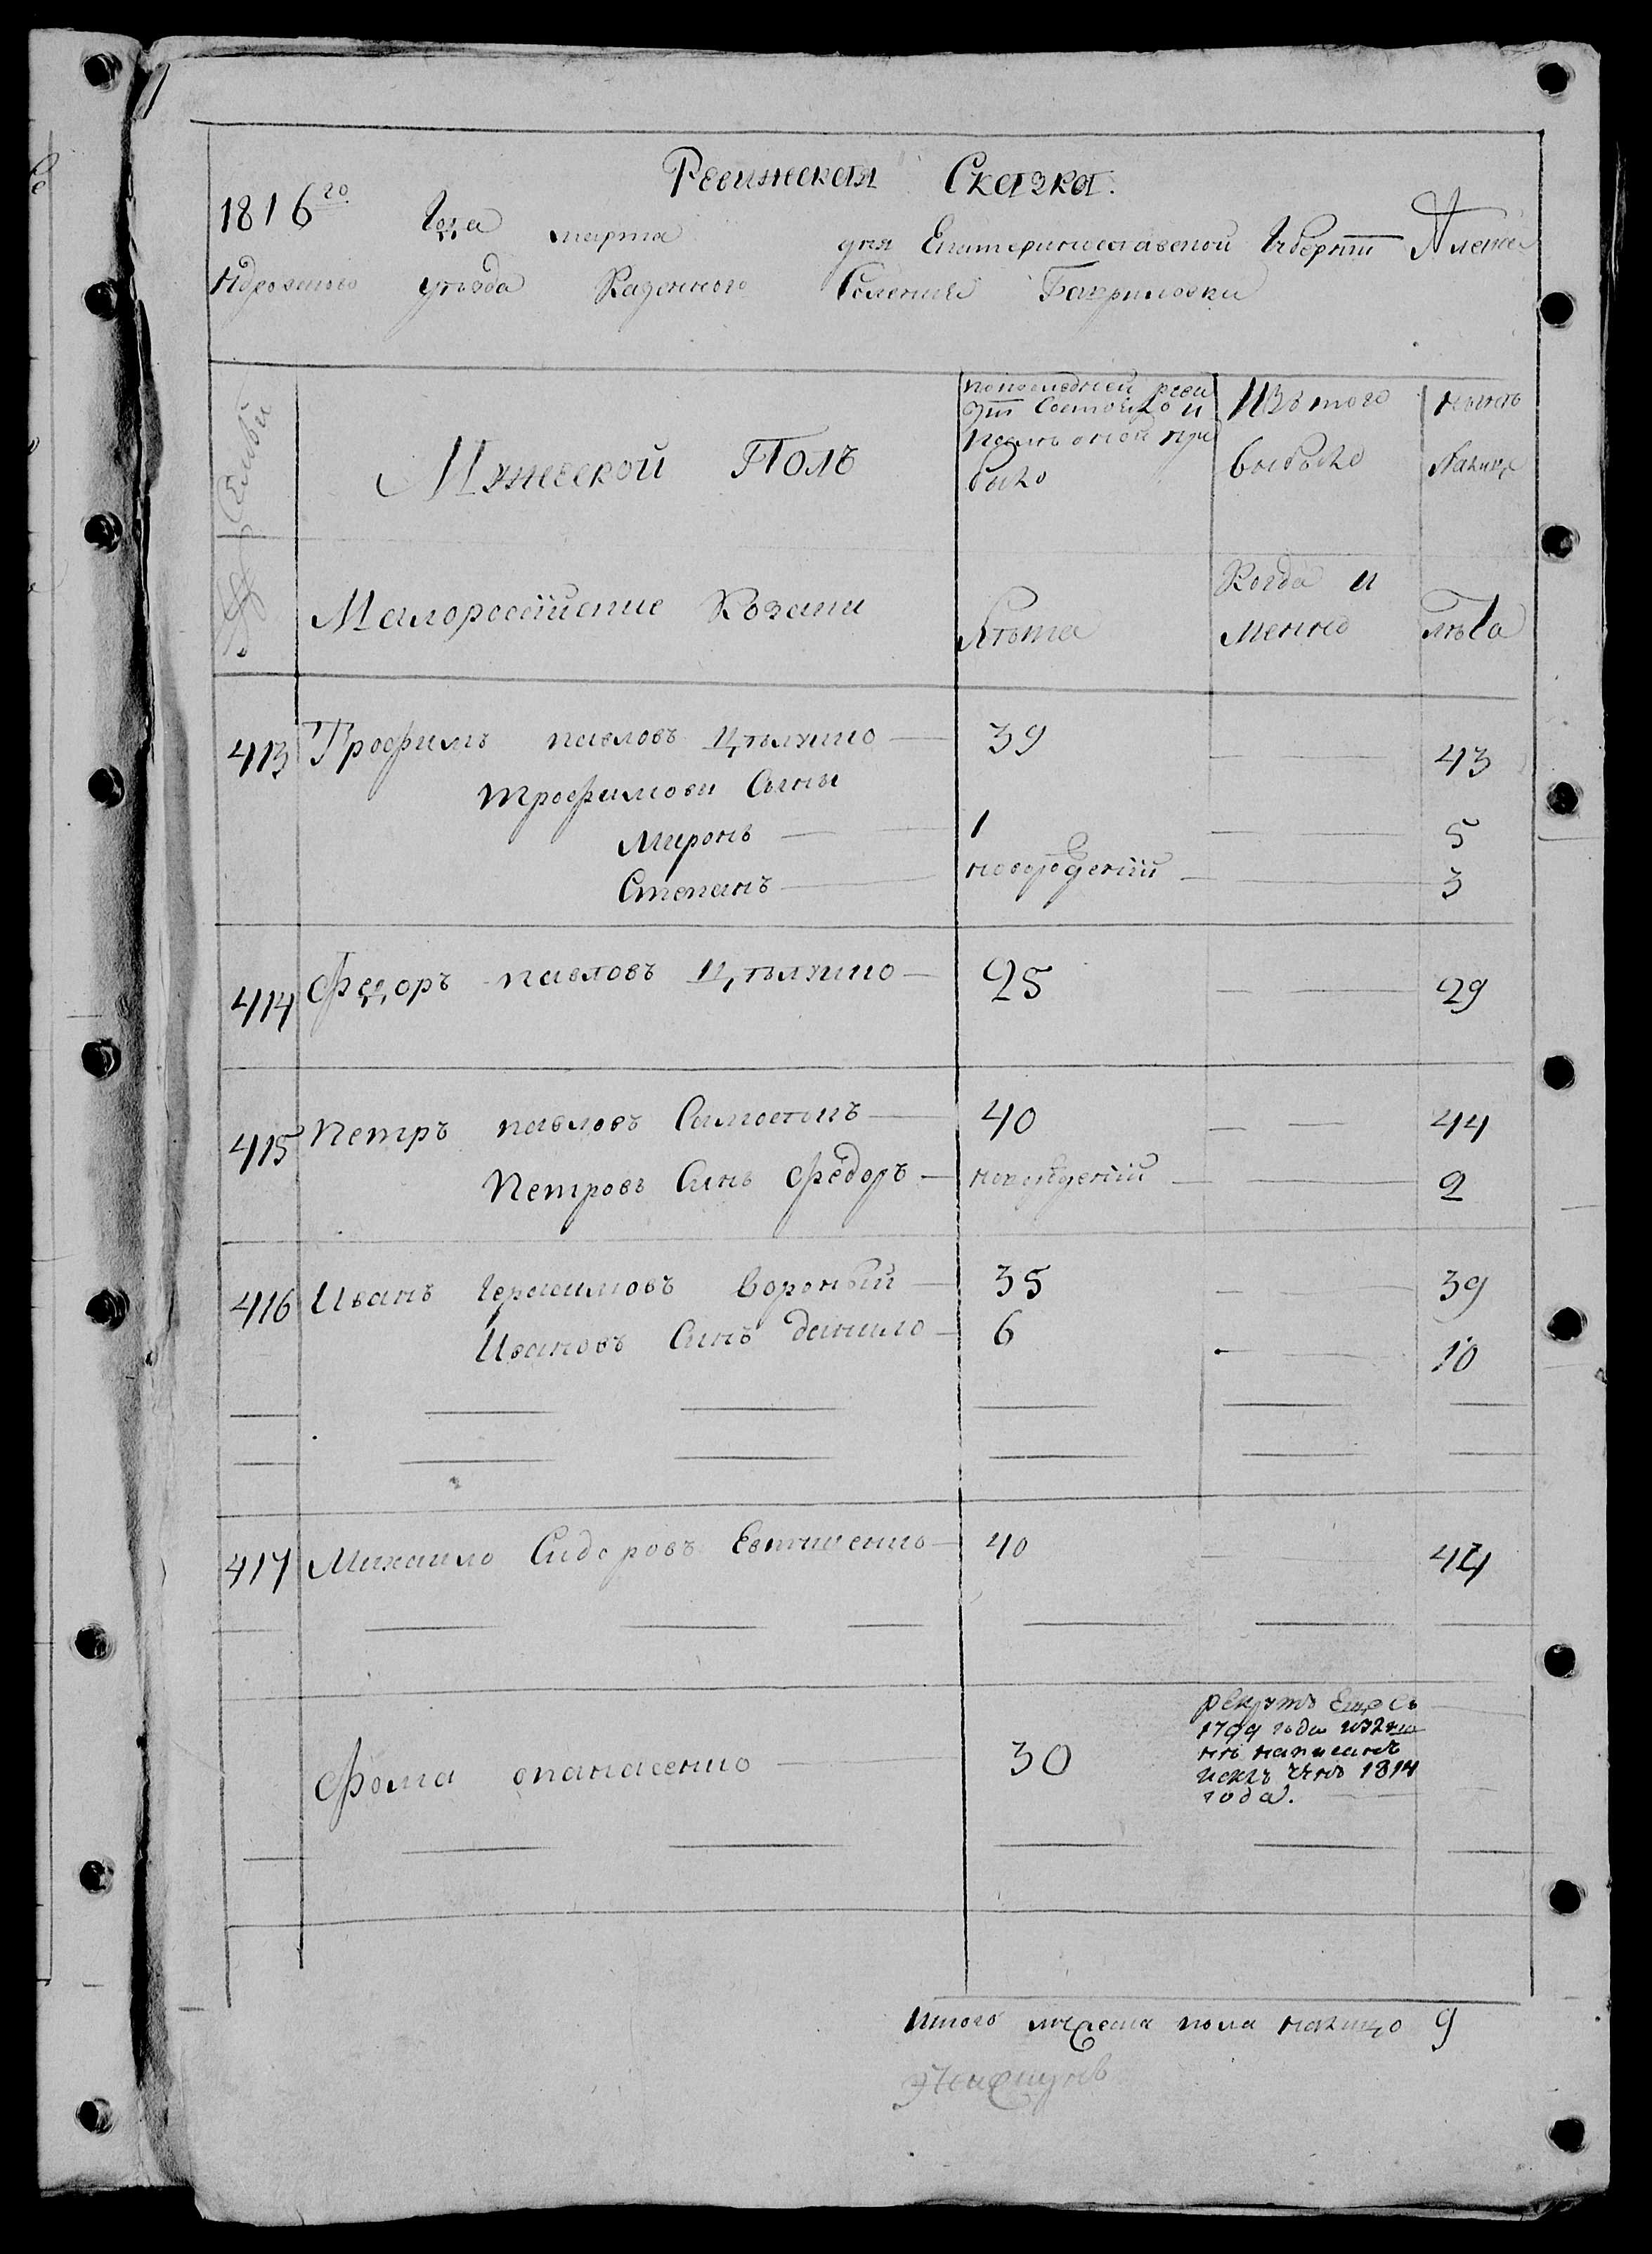 Ревижская Сказка.
1816го Года марта дня Екатеринославской Губернии Алекса
ндровского уезда Казенного Селения Гавриловки
Семьи
Мужеской Полъ
попоследней реви
зіи Состояло и
после оной при
было
Изъ того
выбыло
ныне
Налице
№
Малороссійские Козаки
Лѣта
Когда и
менно
лѣта
413 Трофимъ павловъ Цѣлуйко 39 43
Трофимови Сыны
Миронъ 1 5
Степанъ новорожденій 3
414 Федоръ павловъ Цѣлуйко 25 29
415 Петръ павловъ Самостоиъ 40 44
Петровъ Синъ Федоръ новорожденій 2
416 Иванъ Герасимовъ Вороный 35 39
Ивановъ Синъ данило 6 10
417 Михаило Сидоровъ Евтушенко 40 44
Фома опанасенко 30
рекрутъ Еще Съ
1799 года
нъ написанъ
1814
года.
Итого мужеска пола налицо 9